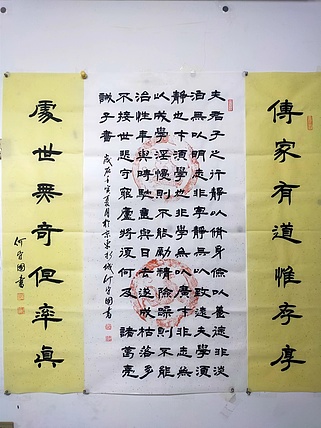 傳家有道惟存厚
夫君子之行靜以脩身儉以養德非淡
泊無以明志非寧靜無以致遠夫學須
靜也才須學也非學無以廣才非志無
以成學淫慢則不能勵精險躁則不能
治性年與時馳意與日去遂成枯落多
不接世悲守窮廬將復何及 諸葛亮
誡子書
歲在壬寅夏月於京東
處世無奇但率真